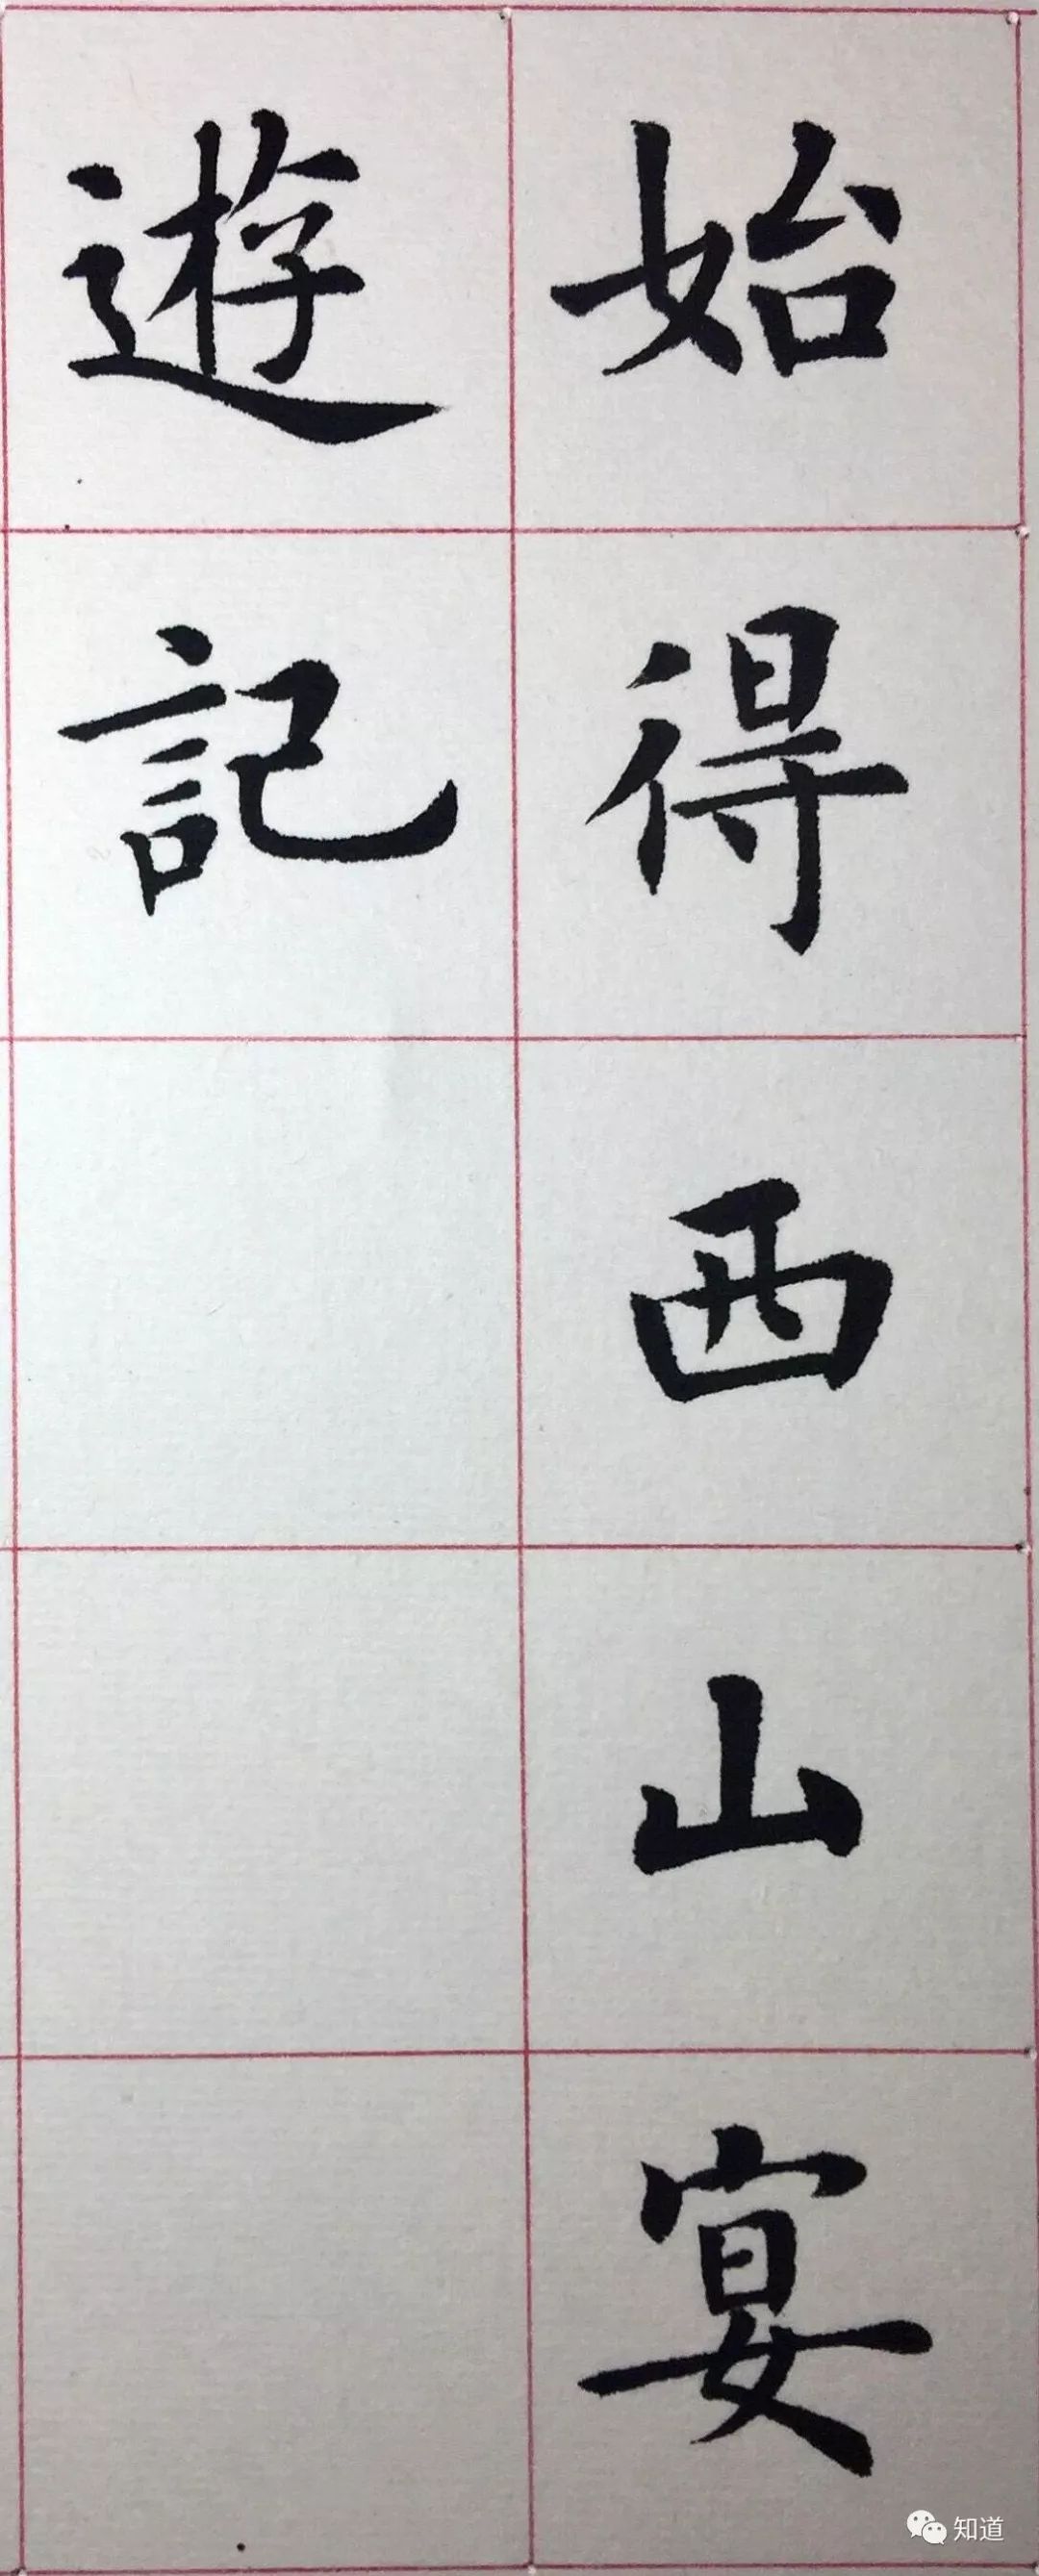 始得西山宴
遊記
知道